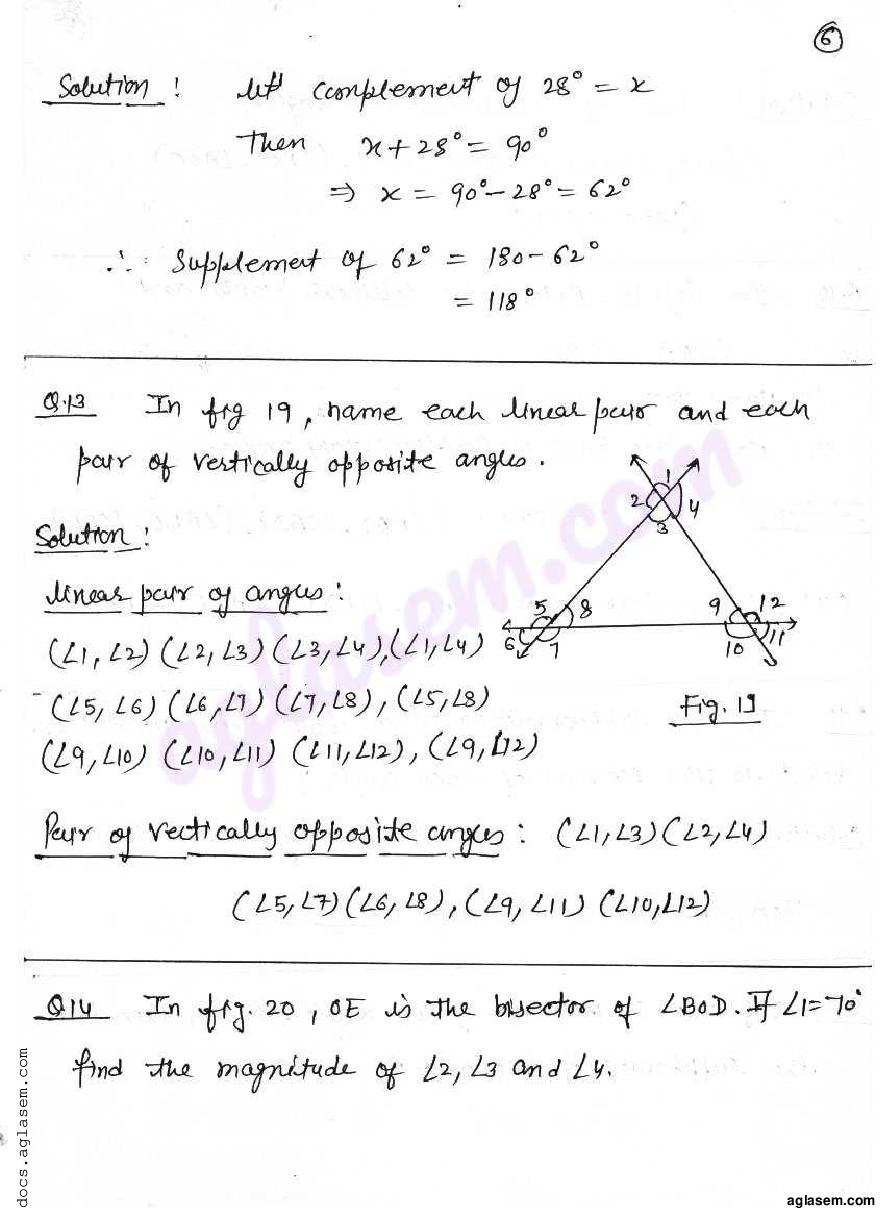 6
Solution : let complement of 28° = x
Then x + 28° = 90°
⇒ x = 90° - 28° = 62°
∴ Supplement of 62° = 180 - 62°
= 118°
Q.13 In fig 19, name each linear pair and each
pair of vertically opposite angles.
Solution :
linear pair of angles :
(∠1, ∠2) (∠2, ∠3) (∠3, ∠4), (∠1, ∠4)
(∠5, ∠6) (∠6, ∠7) (∠7, ∠8), (∠5, ∠8)
(∠9, ∠10) (∠10, ∠11) (∠11, ∠12), (∠9, ∠12)
1
2
4
3
5
8
6
7
9
12
10
11
Fig. 19
Pair of vectically opposite angles : (∠1, ∠3) (∠2, ∠4)
(∠5, ∠7) (∠6, ∠8), (∠9, ∠11) (∠10, ∠12)
Q14 In fig. 20, OE is the bisector of ∠BOD. If ∠1 = 70°
find the magnitude of ∠2, ∠3 and ∠4.
aglasem.com
docs.aglasem.com
aglasem.com